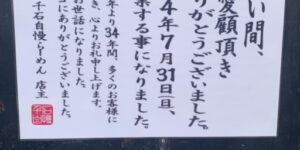 い間、
愛顧頂き
りがとうございました。
4年7月31日(日)、
業する事になりました。
年より34年間、多くのお客様に
き、心よりお礼申し上げます。
お世話になりました。
にありがとうございました。
千石自慢らーめん 店主